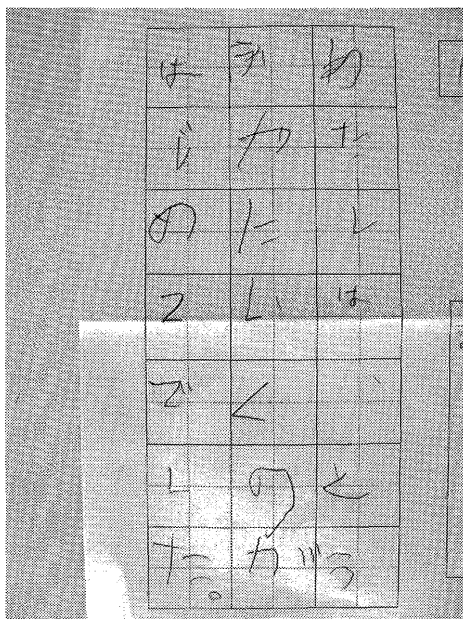 わたしは、とう
デかたしくのが
はじめてでした。